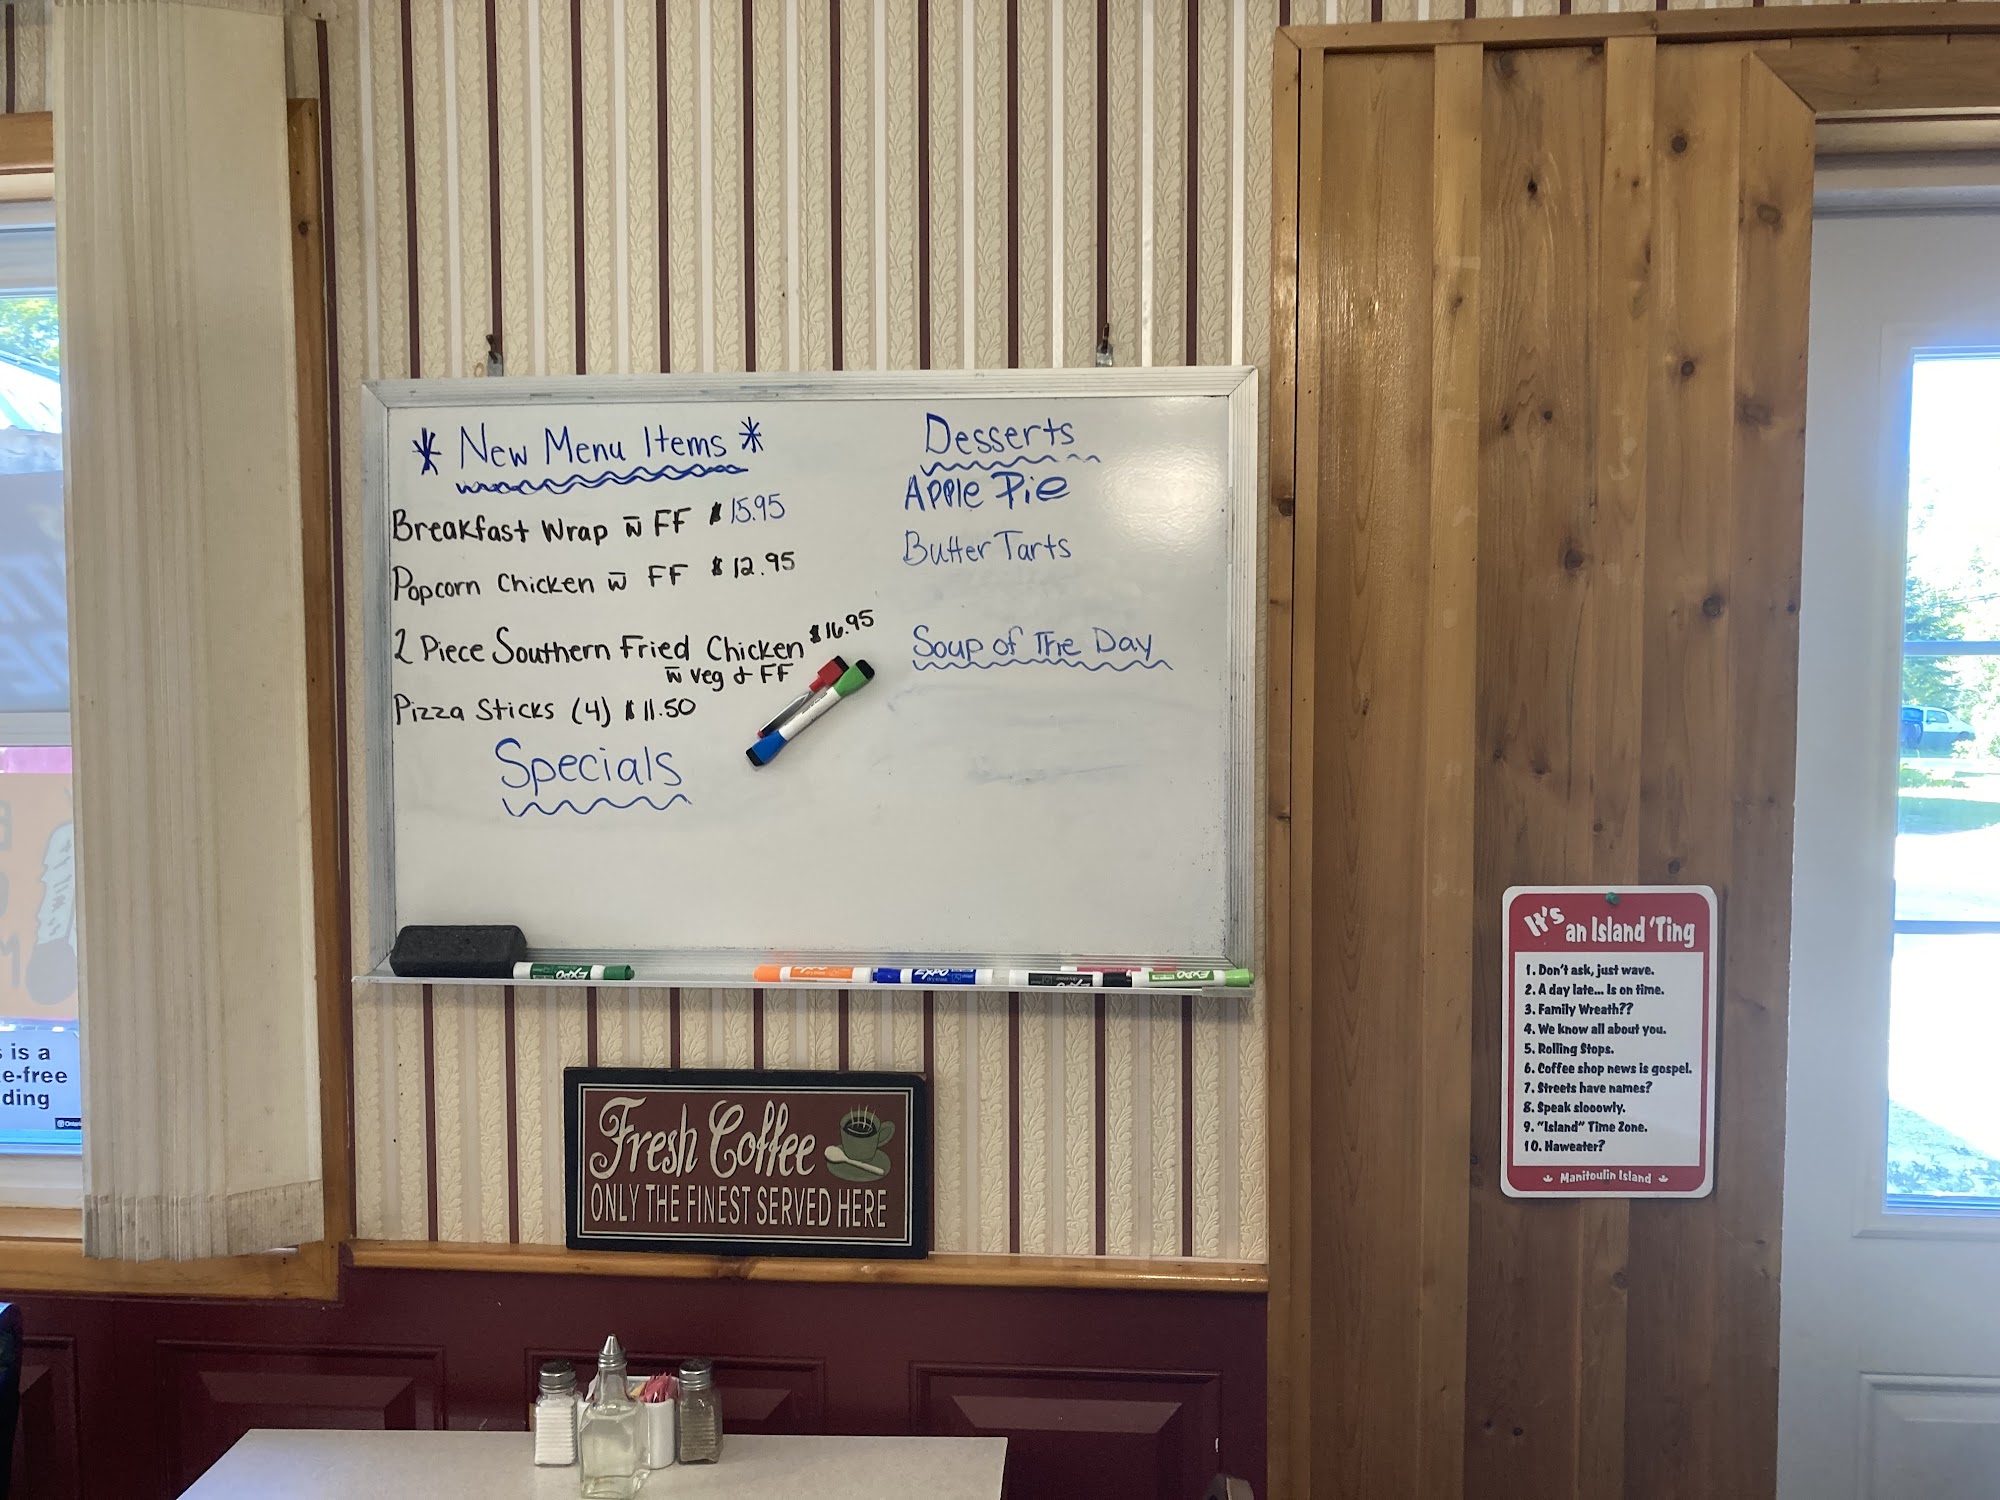 * New Menu Items *
Breakfast Wrap w̄ FF $15.95
Popcorn Chicken w̄ FF $12.95
2 Piece Southern Fried Chicken $16.95
w̄ veg & FF
Pizza Sticks (4) $11.50
Specials
Desserts
Apple Pie
Butter Tarts
Soup of The Day
EXPO
EXPO
EXPO
Fresh Coffee
ONLY THE FINEST SERVED HERE
It's an Island 'Ting
1. Don't ask, just wave.
2. A day late... Is on time.
3. Family Wreath??
4. We know all about you.
5. Rolling Stops.
6. Coffee shop news is gospel.
7. Streets have names?
8. Speak slooowly.
9. "Island" Time Zone.
10. Haweater?
Manitoulin Island
is a
e-free
ding
Ontario